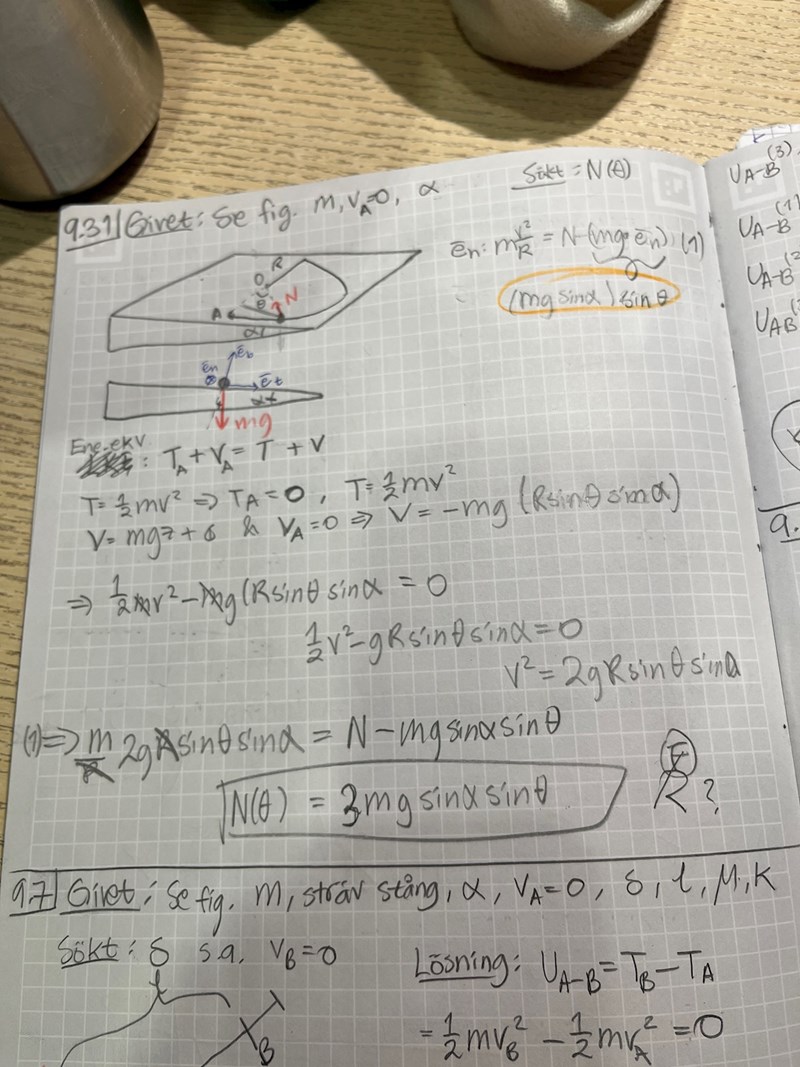 9.31 Givet: Se fig. m, V_A=0, α
Sökt: N(θ)
ē_n: m v²/R = N-(mg•ē_n); (1)
(mg sinα) sinθ
R
O
θ
N
A
α
ē_b
ē_n
ē_t
α
mg
Ene.ekv.: T_A + V_A = T + V
T = ½mv² ⇒ T_A = 0, T = ½mv²
& V_A = 0 ⇒ V = -mg (Rsinθ sinα)
⇒ ½mv² - mg(Rsinθ sinα = 0
½v² - gRsinθ sinα = 0
v² = 2gRsinθ sinα
(1) ⇒ m/R 2gRsinθ sinα = N - mg sinα sinθ
N(θ) = 3mg sinα sinθ
R?
9.7 Givet: Se fig. m, sträv stång, α, V_A=0, δ, l, μ, k
Sökt: δ s.a. V_B=0
Lösning: U_A-B = T_B - T_A
= ½mv_B² - ½mv_A² = 0
B
U_A-B^(3)
U_A-B^(1
U_A-B^(2
U_AB^(
9.